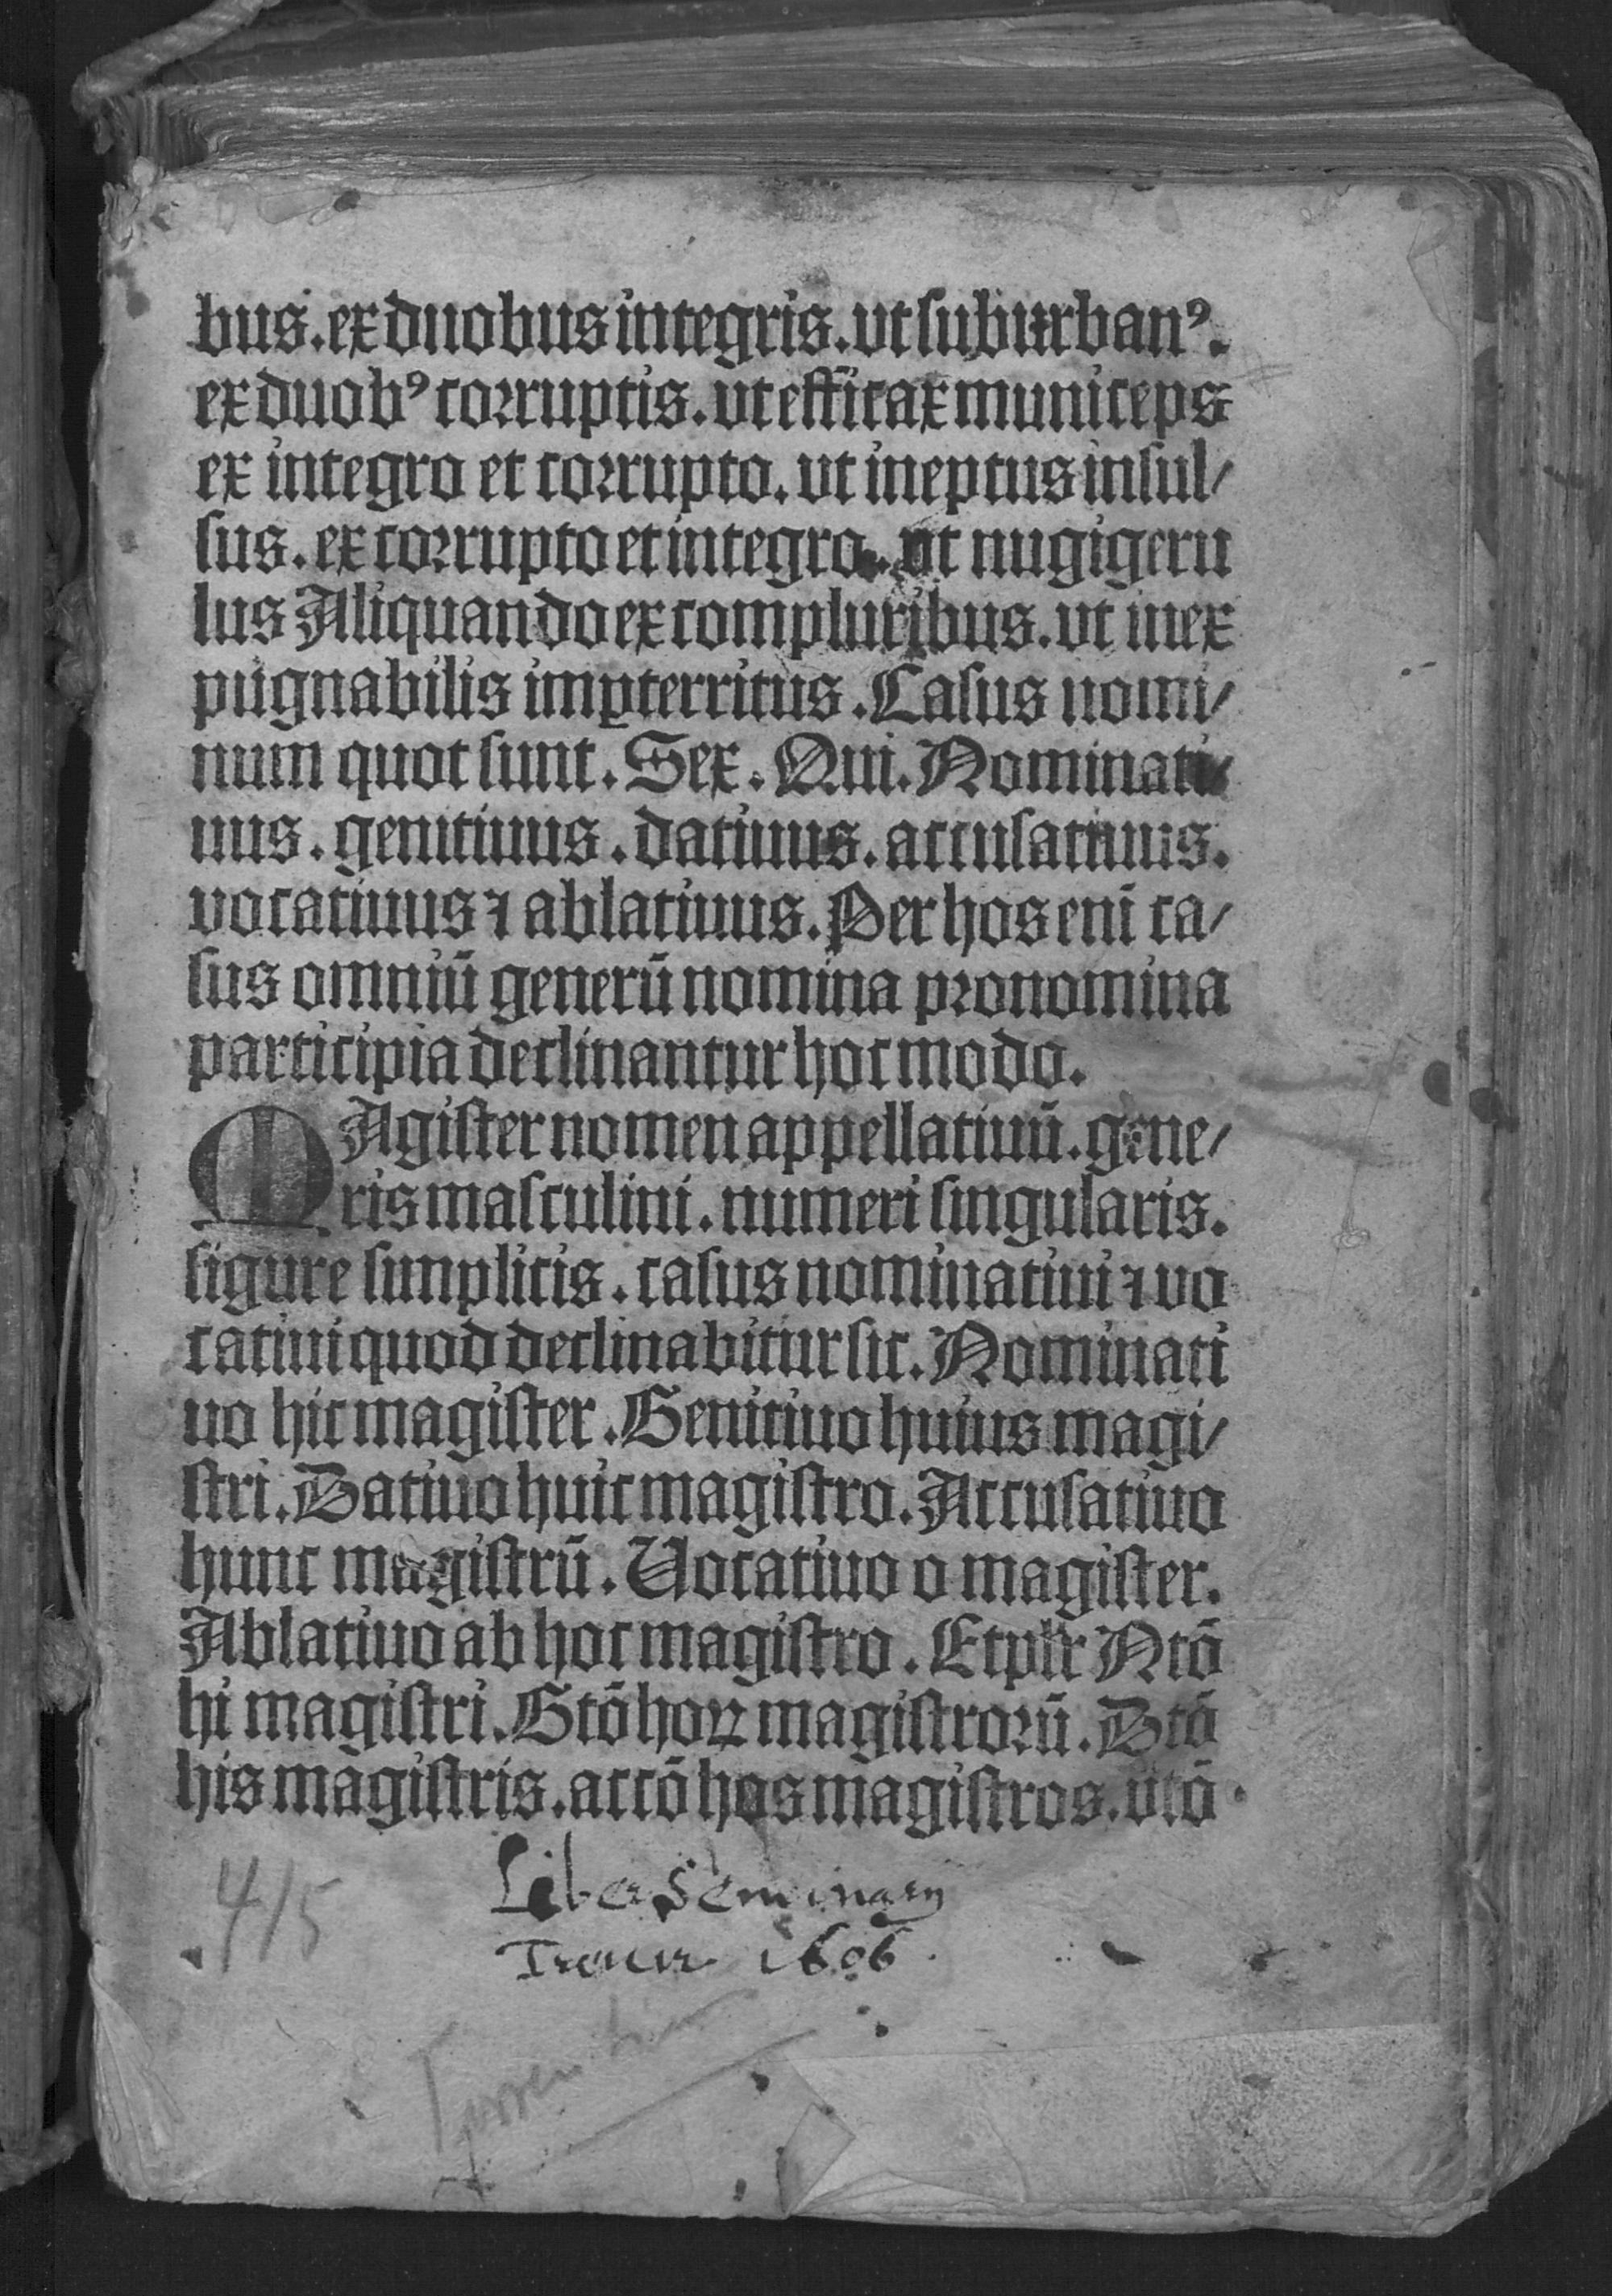 bus. ex duobus integris. vt suburbanꝰ.
ex duobꝰ corruptis. vt efficax municeps
ex integro et corrupto. vt ineptus insul/
sus. ex corrupto et integro. vt nugigeru
lus Aliquando ex compluribus. vt inex
pugnabilis imꝑterritus. Casus nomi/
num quot sunt. Sex. Qui. Nominati/
uus. genitiuus. datiuus. accusatiuus.
vocatiuus ⁊ ablatiuus. Per hos enī ca/
sus omniū generū nomina pronomina
participia declinantur hoc modo.
MAgister nomen appellatiuū. gene/
ris masculini. numeri singularis.
figure simplicis. casus nominatiui ⁊ vo
catiui quod declinabitur sic. Nominati
uo hic magister. Genitiuo huius magi/
stri. Datiuo huic magistro. Accusatiuo
hunc magistrū. Uocatiuo o magister.
Ablatiuo ab hoc magistro. Et pllr Ntō
hi magistri. Gtō hoꝝ magistrorū. Dtō
his magistris. accō hos magistros. vtō
415
Liber Seminarij
Treuir 1606.